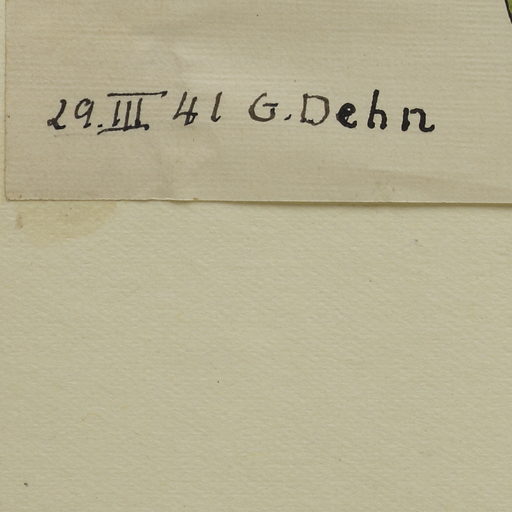 29.III 41 G. Dehn